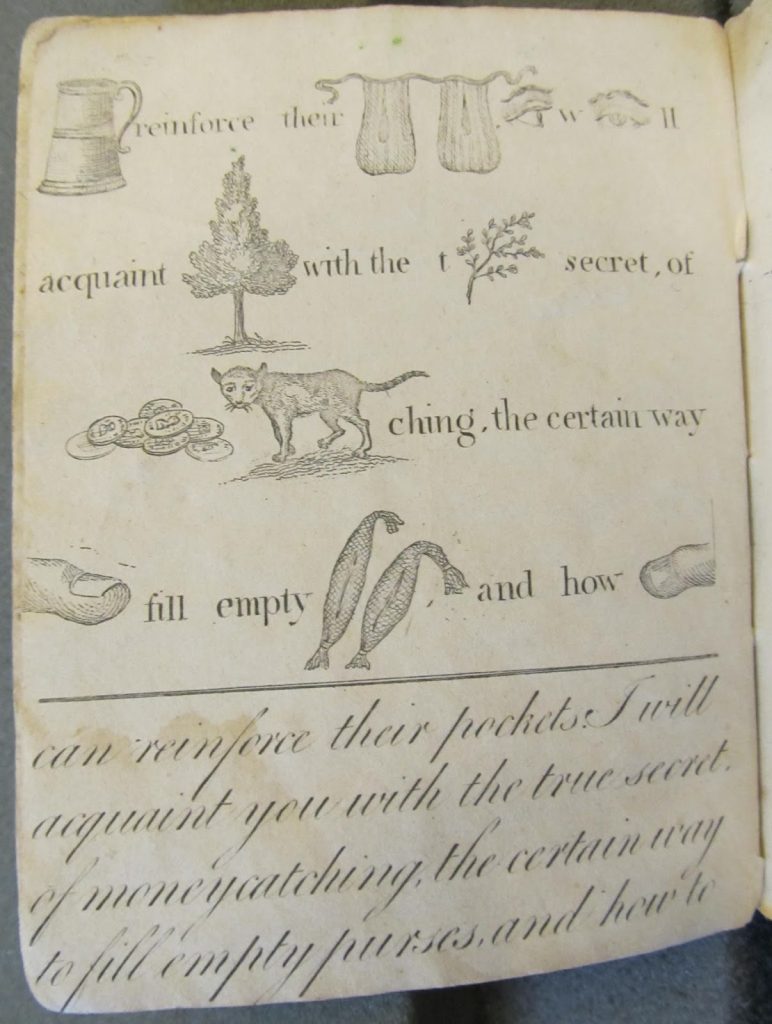 reinforce their . w ll
acquaint with the t secret, of
ching, the certain way
fill empty , and how
can reinforce their pockets: I will
acquaint you with the true secret.
of moneycatching, the certain way
to fill empty purses, and how to